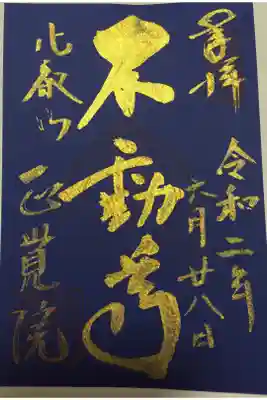 奉拝
令和二年
六月廿八日
不動尊
比叡山
正覚院